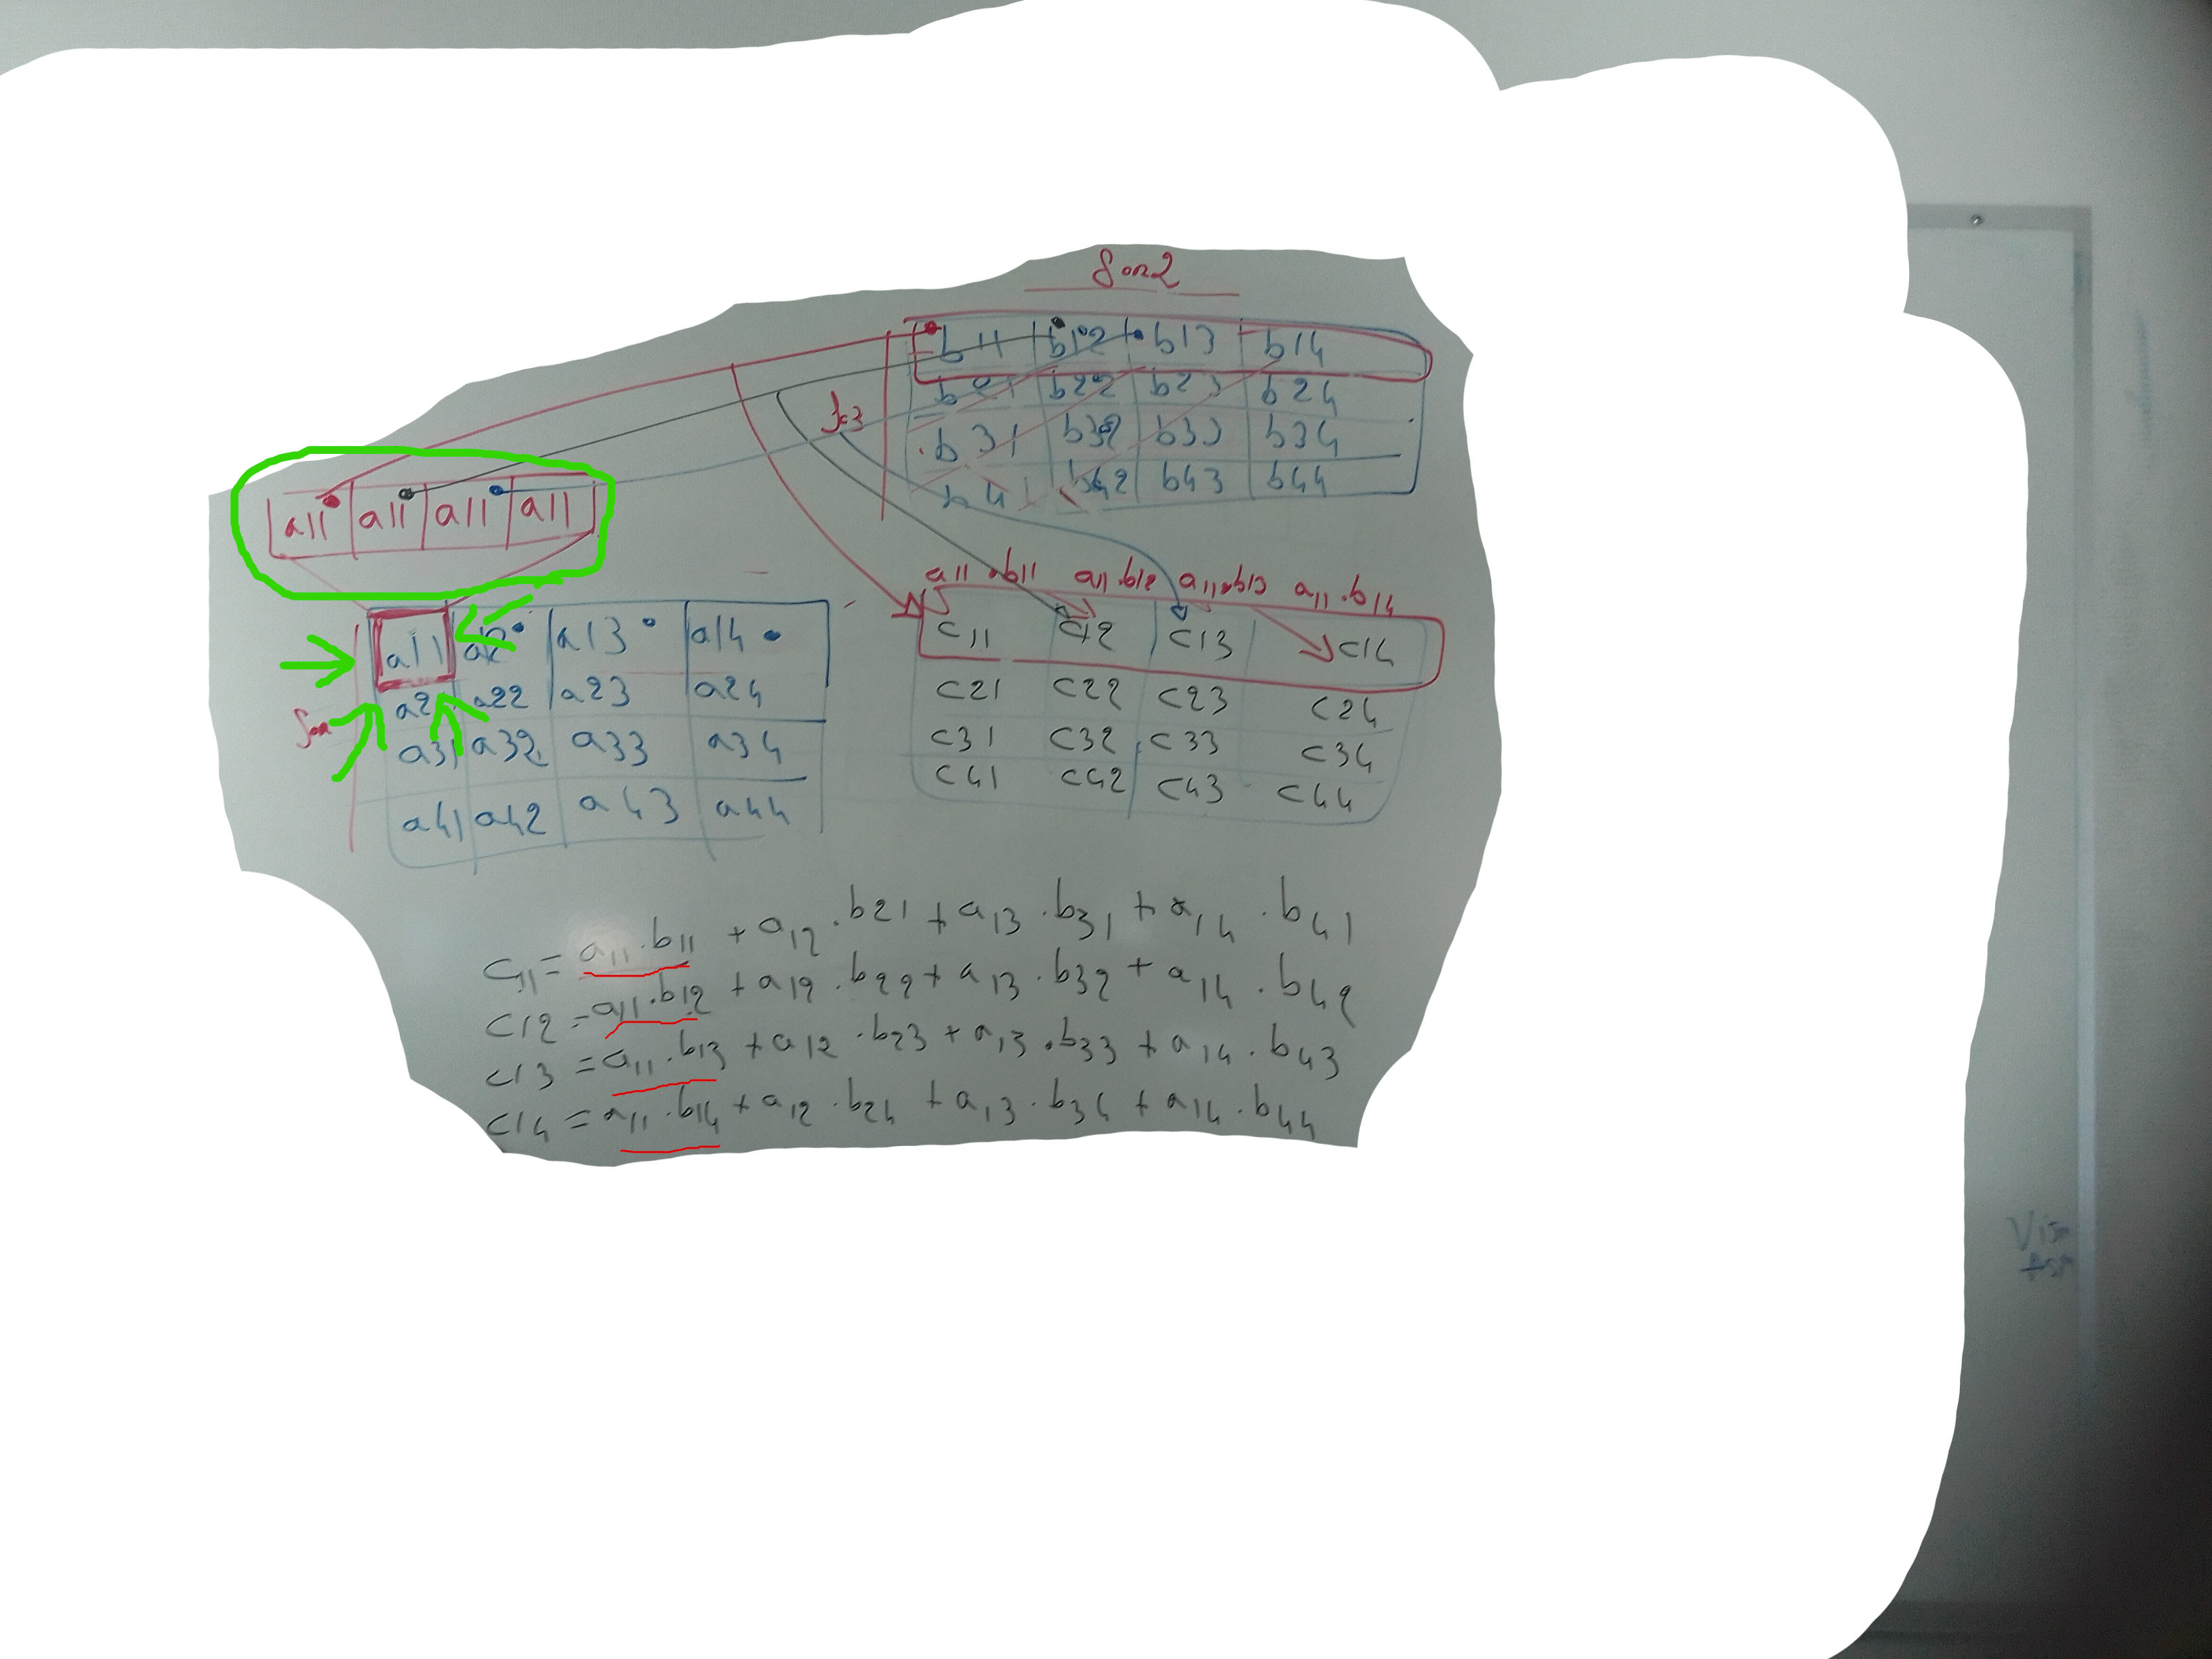 for2
b11 b12 b13 b14
b21 b22 b23 b24
b31 b32 b33 b34
b41 b42 b43 b44
a11 a11 a11 a11
a11·b11 a11·b12 a11·b13 a11·b14
a11 a12 a13 a14
a21 a22 a23 a24
a31 a32 a33 a34
a41 a42 a43 a44
c11 c12 c13 c14
c21 c22 c23 c24
c31 c32 c33 c34
c41 c42 c43 c44
c11 = a11·b11 + a12·b21 + a13·b31 + a14·b41
c12 = a11·b12 + a12·b22 + a13·b32 + a14·b42
c13 = a11·b13 + a12·b23 + a13·b33 + a14·b43
c14 = a11·b14 + a12·b24 + a13·b34 + a14·b44